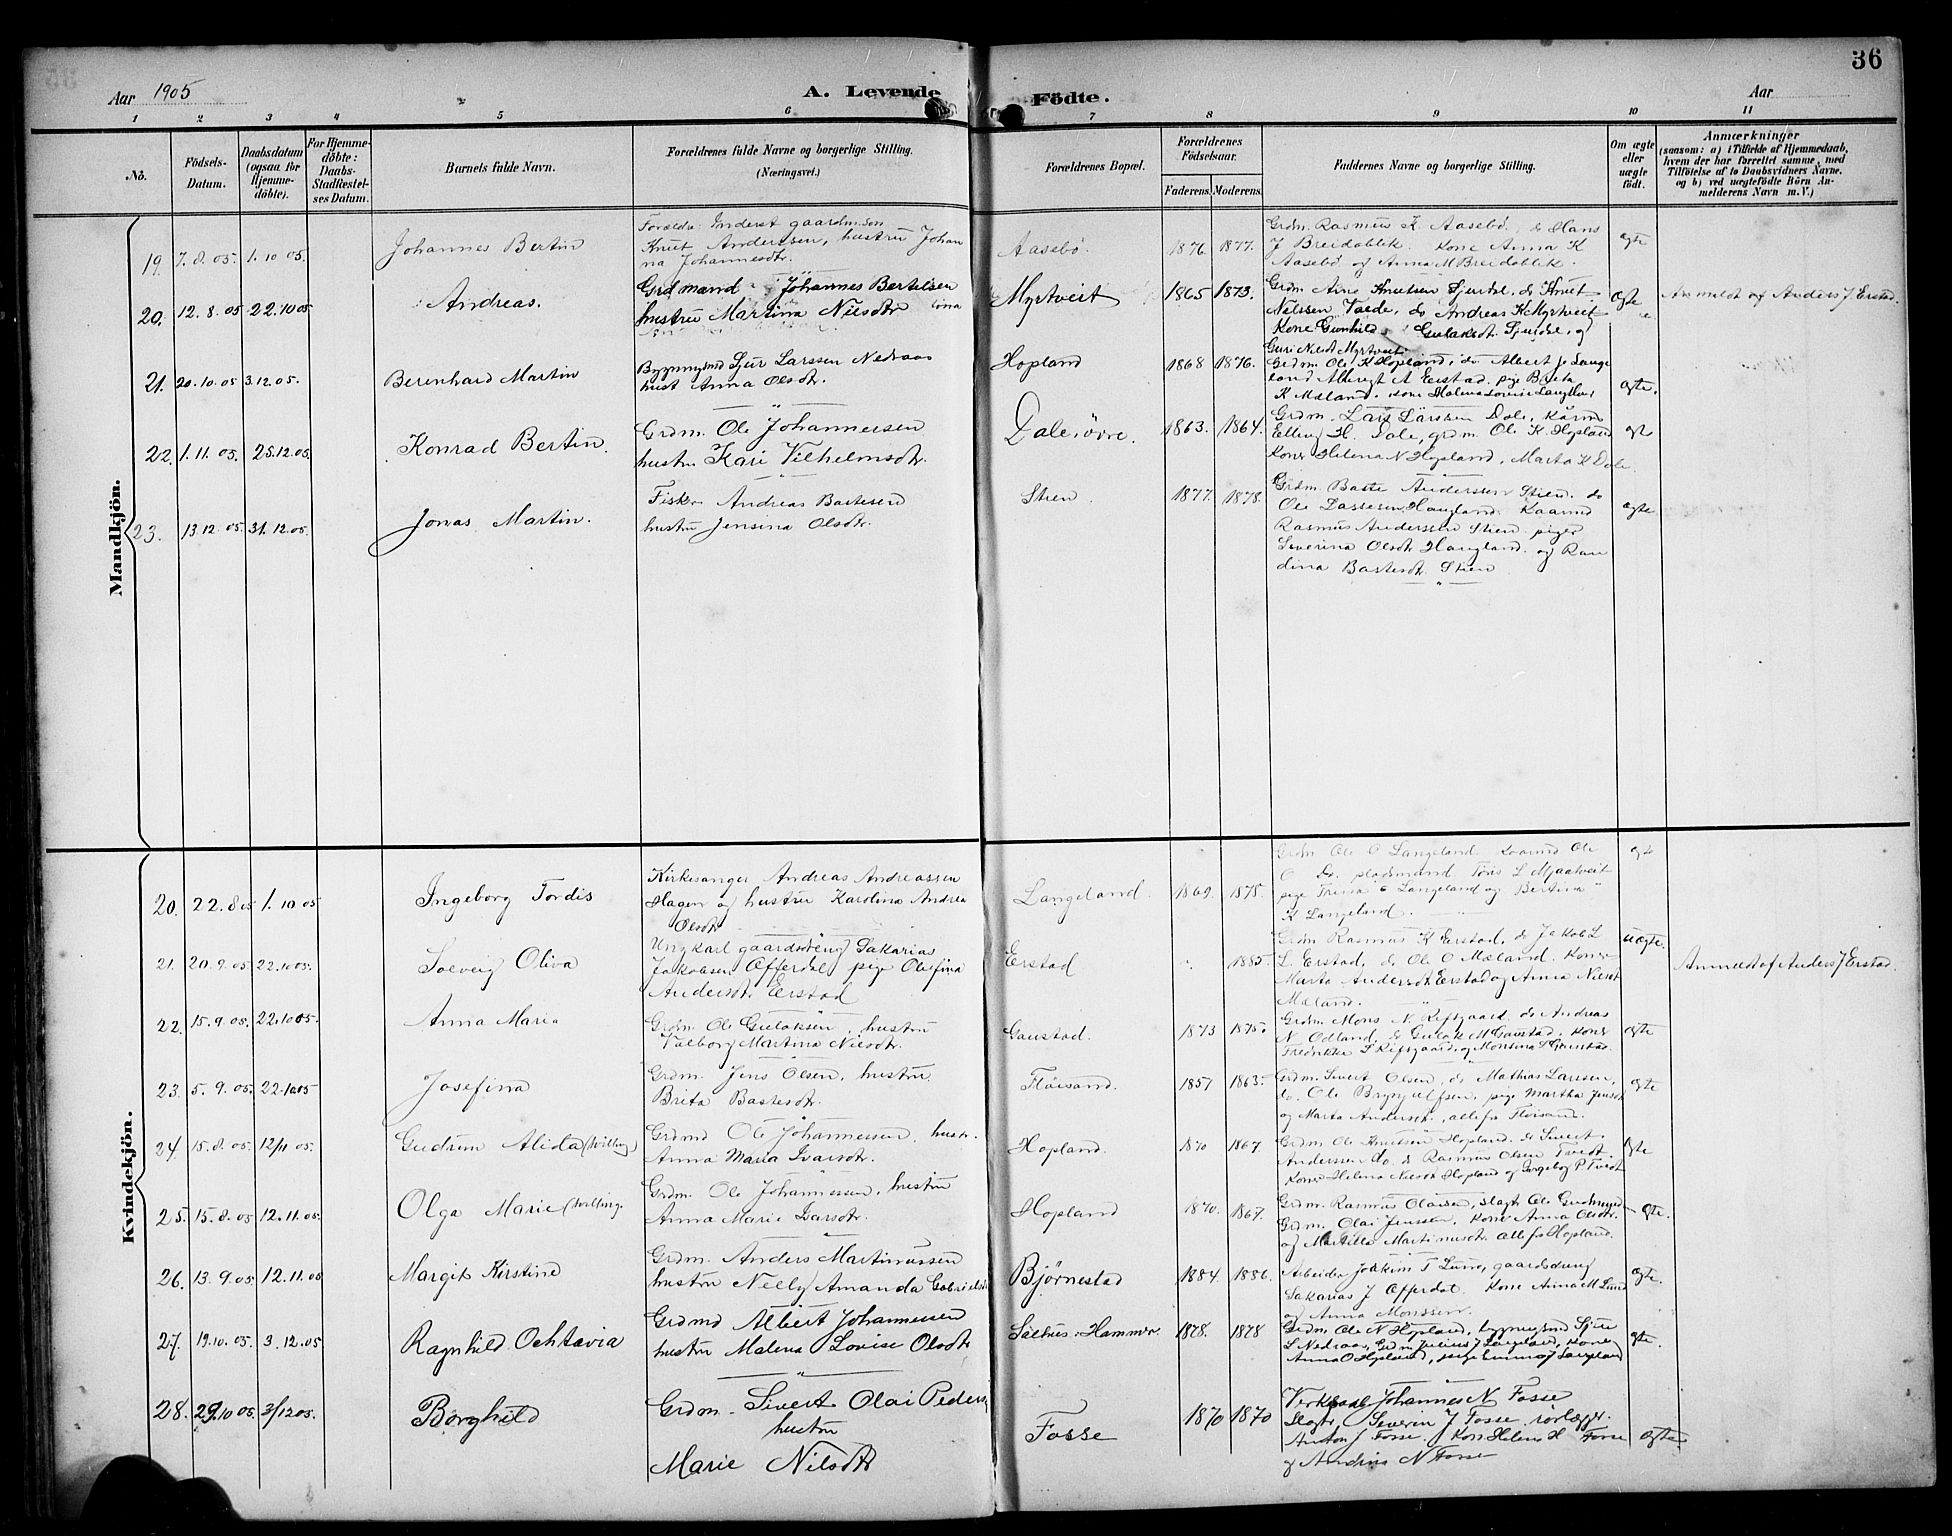 36
Aar 1905
A. Levende
Födte.
Aar
1 2 3 4 5 6 7 8 9 10 11
No.
Födsels-Datum.
Daabsdatum (ogsaa for Hjemme-döbte).
For Hjemme-döbte: Daabs-Stadfæstel-ses Datum.
Barnets fulde Navn.
Forældrenes fulde Navne og borgerlige Stilling. (Næringsvei.)
Forældrenes Bopæl.
Forældrenes Födselsaar.
Faderens. Moderens.
Faddernes Navne og borgerlige Stilling.
Om ægte eller uægte födt.
Anmærkninger
(saasom: a) i Tilfælde af Hjemmedaab, hvem der har forrettet samme, med Tilföielse af to Daabsvidners Navne. og b) ved uægtefödte Börn Anmelderens Navn m. V.)
Mandkjön.
19. 7.8.05. 1.10 05. Johannes Bertin
Forældre Inderst gaardm. søn
Knut Andersen, hustru Johan
na Johannesdtr.
Aasebö 1876. 1877.
Grdm. Rasmus K Aasebö, do Hans
J Breidablik. Kone Anna K
Aasebö og Anna M Breidablik.
ægte
20. 12.8.05 22.10 05 Andreas.
Grdmand Johannes Bertelsen
hustru Martina Nilsdtr
Myrtveit 1865 1873.
Grdm. Arne Knutsen Sjurdse, do Knut
Nilssen Valde, do Andreas K Myrtveit
Kone Gunhild Gulaksdt. Sjurdse, og
Guri Nilsdt Myrtveit
ægte
Anmeldt af Anders J Erstad.
21. 20.10.05 3.12.05. Berenhard Martin
Bygmgsmd Sjur Larssen Nedraas
hust Anna Olsdtr.
Hopland 1868 1876.
Grdm. Ole K Hopland, do Albert J. Lange
land Albregt A Eerstad. pige Brita
K Mæland. Kone Malena Lovise Langeland
ægte.
22. 1.11.05. 25.12.05. Konrad Bertin.
Grdm. Ole Johannesen
hustru Kari Vilhelmsdtr.
Dale iövre. 1863. 1864.
Grdm. Lars Larssen Dale, Kårmd
Elling H. Dale, grdm. Ole K Hopland
Kone Helena N Hopland, Marta K Dale.
ægte
23. 13.12.05. 31.12.05. Jonas Martin.
Fisker Andreas Bastesen
hustru Jensina Olsdtr.
Stien 1877. 1878.
Grdm. Baste Anderssen Stien. do
Ole Lassesen Haugland. Kaarmd
Rasmus Anderssen Stien piger
Severina Olsdtr Haugland. og Ran
dina Bastesdtr. Stien
ægte
Kvindekjön.
20. 22.8.05 1.10 05 Ingeborg Tordis
Kirkesanger Andreas Andreassen
Hagen og hustru Karolina Andrea
Olsdtr
Langeland. 1869. 1875.
Grdm Ole O Langeland. Kaarmd Ole
O Do. pladsmand Töris L Mjaatveit
pige Trina O Langeland og Bertina
K Langeland.
ægte
21. 20.9.05 22.10 05. Solveig Oliva
Ungkarl gaardsdreng Sakarias
Jakobsen Offerdal, pige Olefina
Andersdtr. Eerstad
Eerstad 1885.
Grdm Rasmus K Erstad, do Jakob L
L. Erstad, do Ole O Mæland. Kone
Marta Andersdt. Erstad og Anna Nilsdt
Mæland.
uægte.
Anmeldt af Anders J Erstad.
22. 15.9.05. 22.10 05. Anna Maria
Grdm. Ole Gulaksen, hustru
Valborg Martina Nilsdtr.
Gaustad. 1873 1875.
Grdm. Mons N. Refsgaard. do Andreas
N Odland. do Gulak M Gaustad. Kone
Fredrikke S Refsgaard, og Monsina S Gaustad.
ægte
23. 5.9.05. 22.10 05 Josefina
Grdm. Jens Olsen, hustru
Brita Bastesdtr.
Flöisand. 1857 1863.
Grdm. Sivert Olsen, do Mathias Larssen,
do. Ole Brynjulfsen, pige Martha Jensdt
og Marta Andersdt., alle fra Flöisand.
ægte
24. 15.8.05. 12/11 05. Gudrun Alida (tvilling)
Grdmd Ole Johannessen, hustr.
Anna Maria Ivarsdtr.
Hopland. 1870 1867.
Grdm Ole Knutsen Hopland. do Sivert
Anderssen do. do Rasmus Olsen Tvedt.
Kone Helena Nilsdt Hopland og Ingebog P Tvedt
ægte
25. 15.8.05 12.11.05. Olga Marie (tvilling.
Grdm. Ole Johannessen, hustru
Anna Marie Ivarsdtr.
Hopland 1870. 1867.
Grdm. Rasmus Olaisen, slagt. Ole Gudmund
Grdm. Olai Jenssen, Kone Anna Olsdtr.
og Martilla Martinusdt. alle fra Hopland.
ægte.
26. 13.9.05 12.11.05 Margit Kirstine
Grdm. Anders Martinussen
hustru Nelly Amanda Gabrielsdt
Björnestad 1884. 1886.
Arbeider Joakim T Lund, gaardsdreng
Sakarias J Offerdal. Kone Anna M Lund
og Anna Monssen.
ægte.
27. 19.10.05. 3.12.05 Ragnhild Ochtavia
Grdmd Albert Johannessen
hustru Malena Lovise Olsdtr
Salhus i Hammer. 1878. 1878
Grdm. Ole N Hopland, bygningsmd Sjur
L Nedraas, Grdm Julius J Langeland, Kone
Anna O Hopland, pige Emma J Langeland
ægte.
28. 29.10 05. 3/12 05. Borghild
Grdm. Sivert Olai Peders
hustru
Marie Nilsdtr
Fosse 1870 1870
Johannes N Fosse
Slagt. Severin J Fosse rorlægger
Anton J Fosse. Kone Helene H Fosse
og Andrias N Fosse
ægte